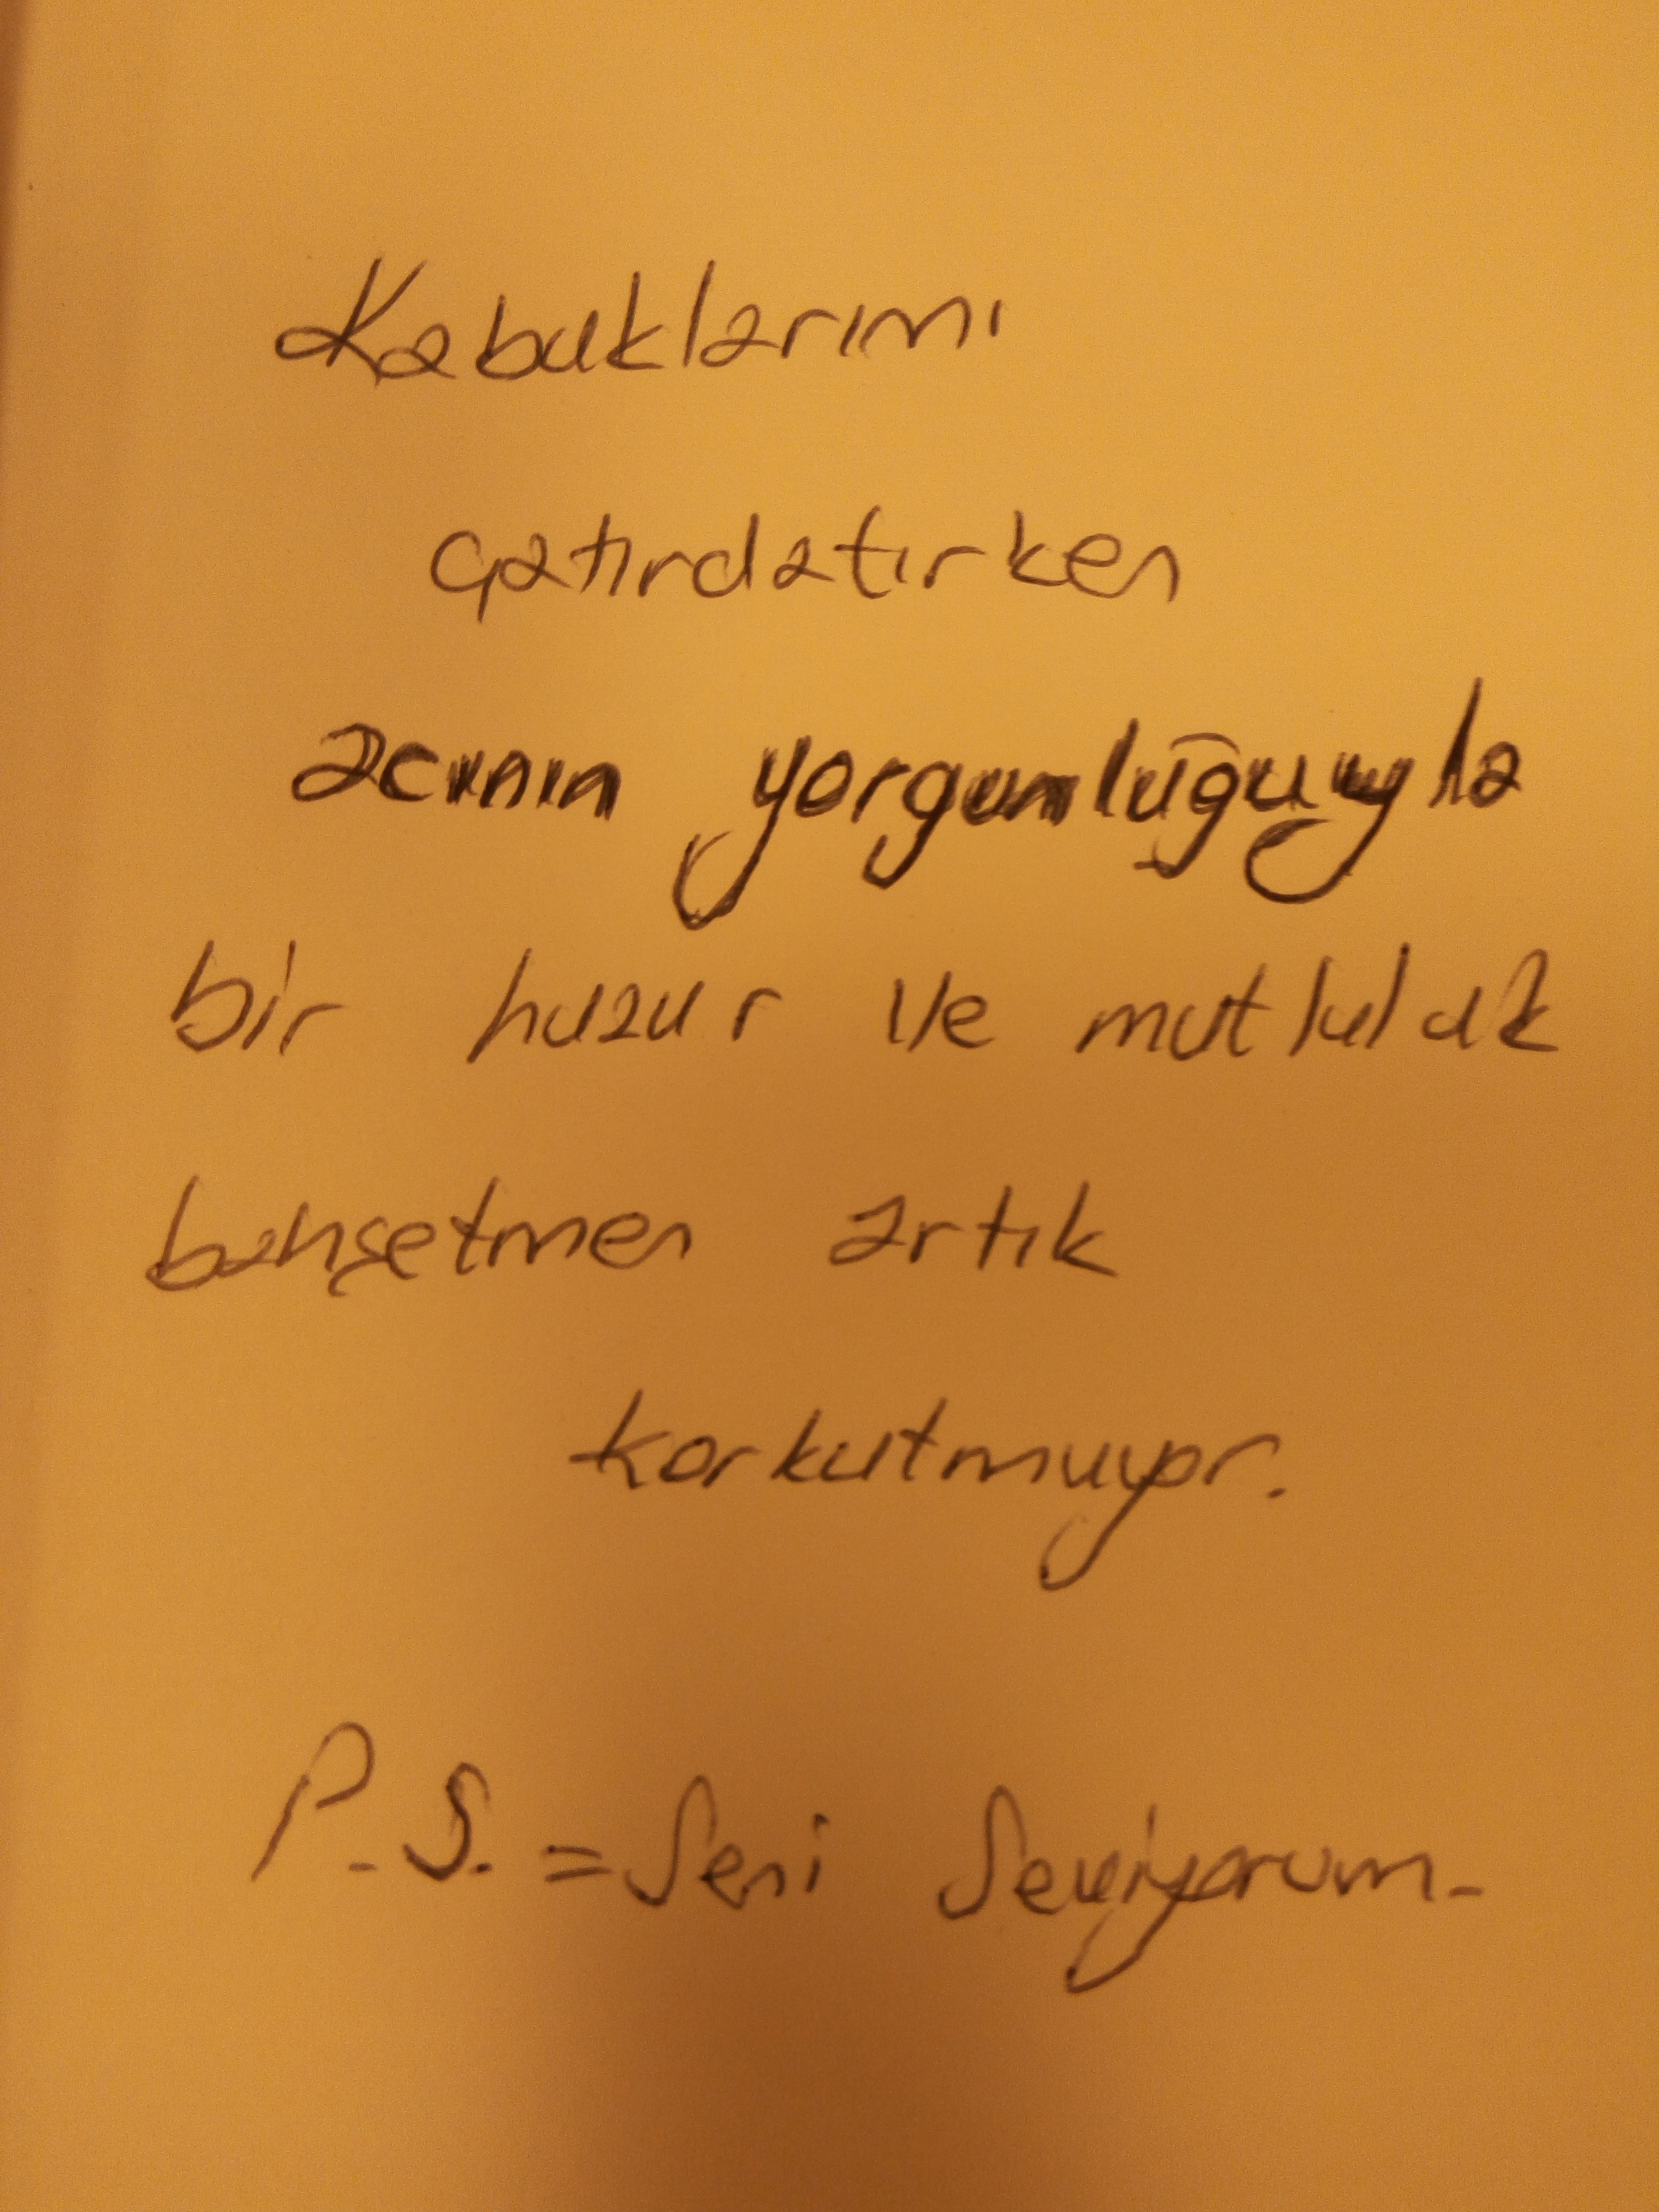 Kabuklarımı
çatırdatırken
acının yorgunluğuyla
bir huzur ve mutluluk
bahşetmen artık
korkutmuyor.
P.S. = Seni Seviyorum.